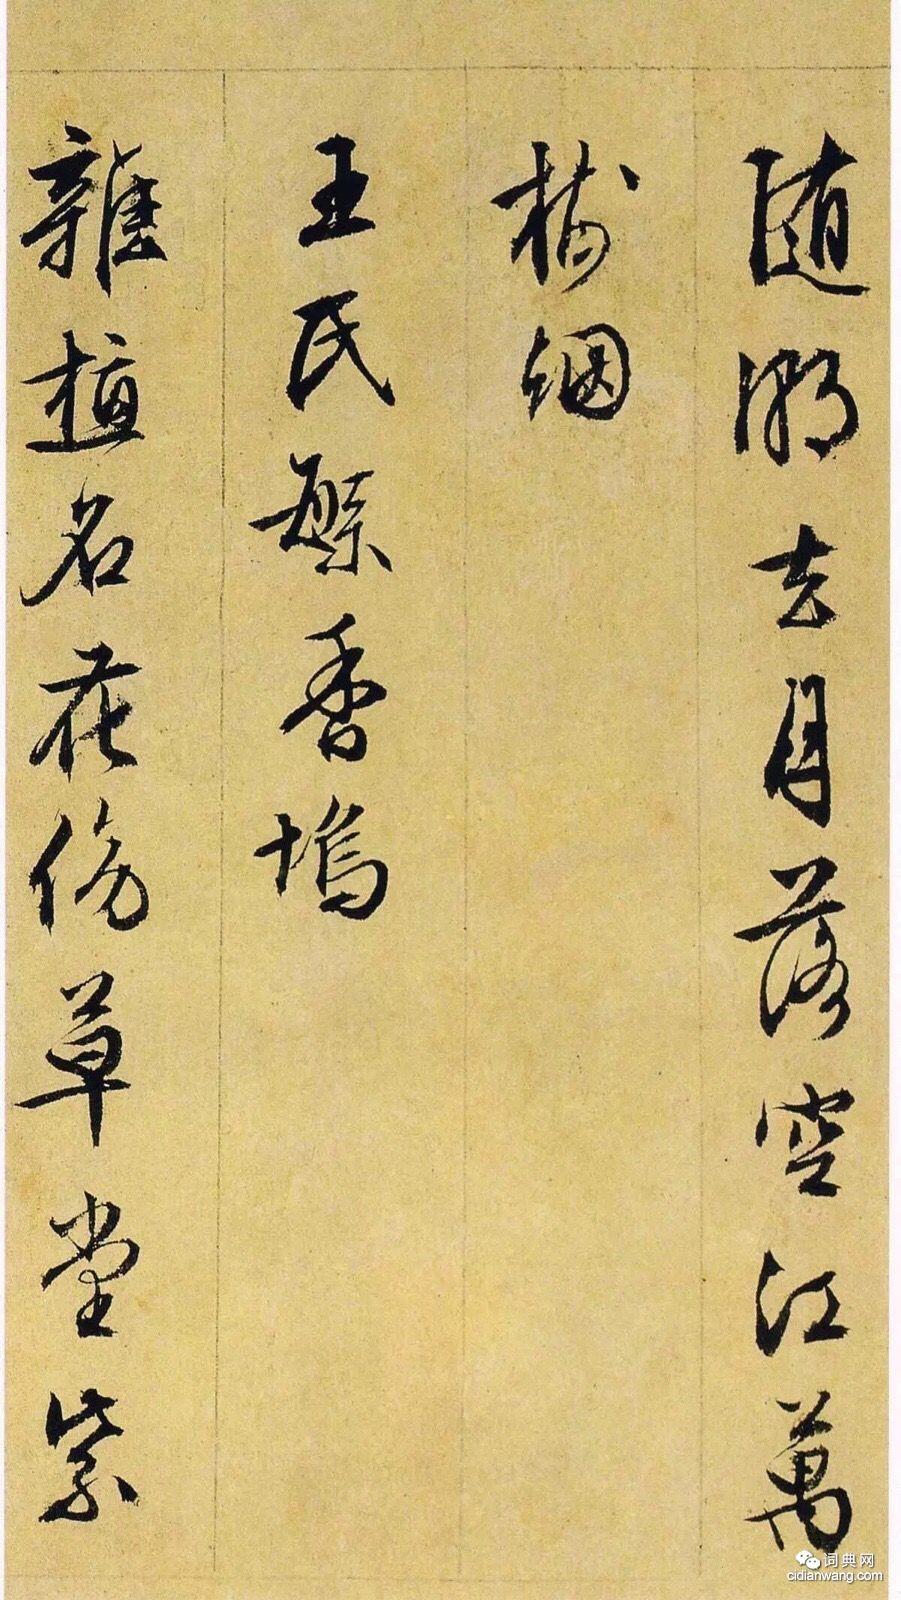 随潮去月落空江萬
樹烟
王氏繁香塢
雜植名花傍草堂紫
词典网
cidianwang.com